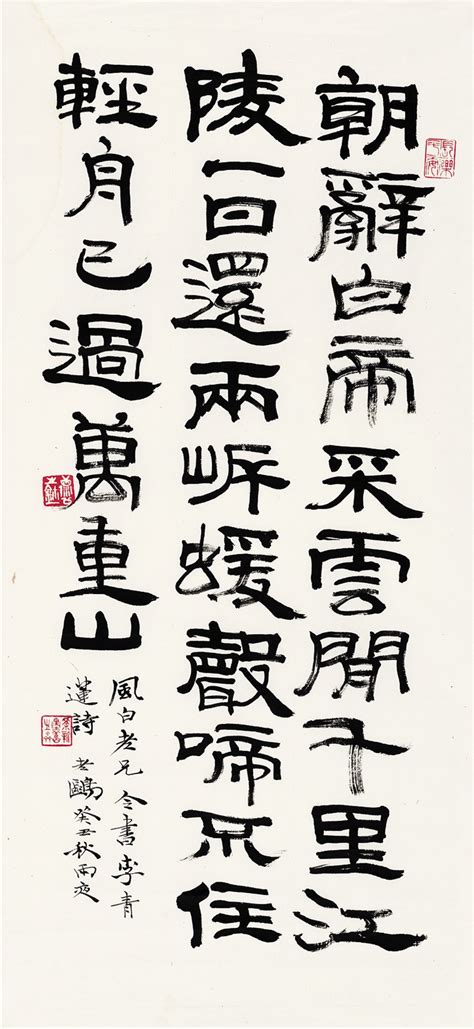 朝辭白帝采雲間千里江
陵一日還兩岍蝯聲啼不住
輕舟已過萬重山
風白老兄令書李青
蓮詩 老鷗癸丑秋雨夜